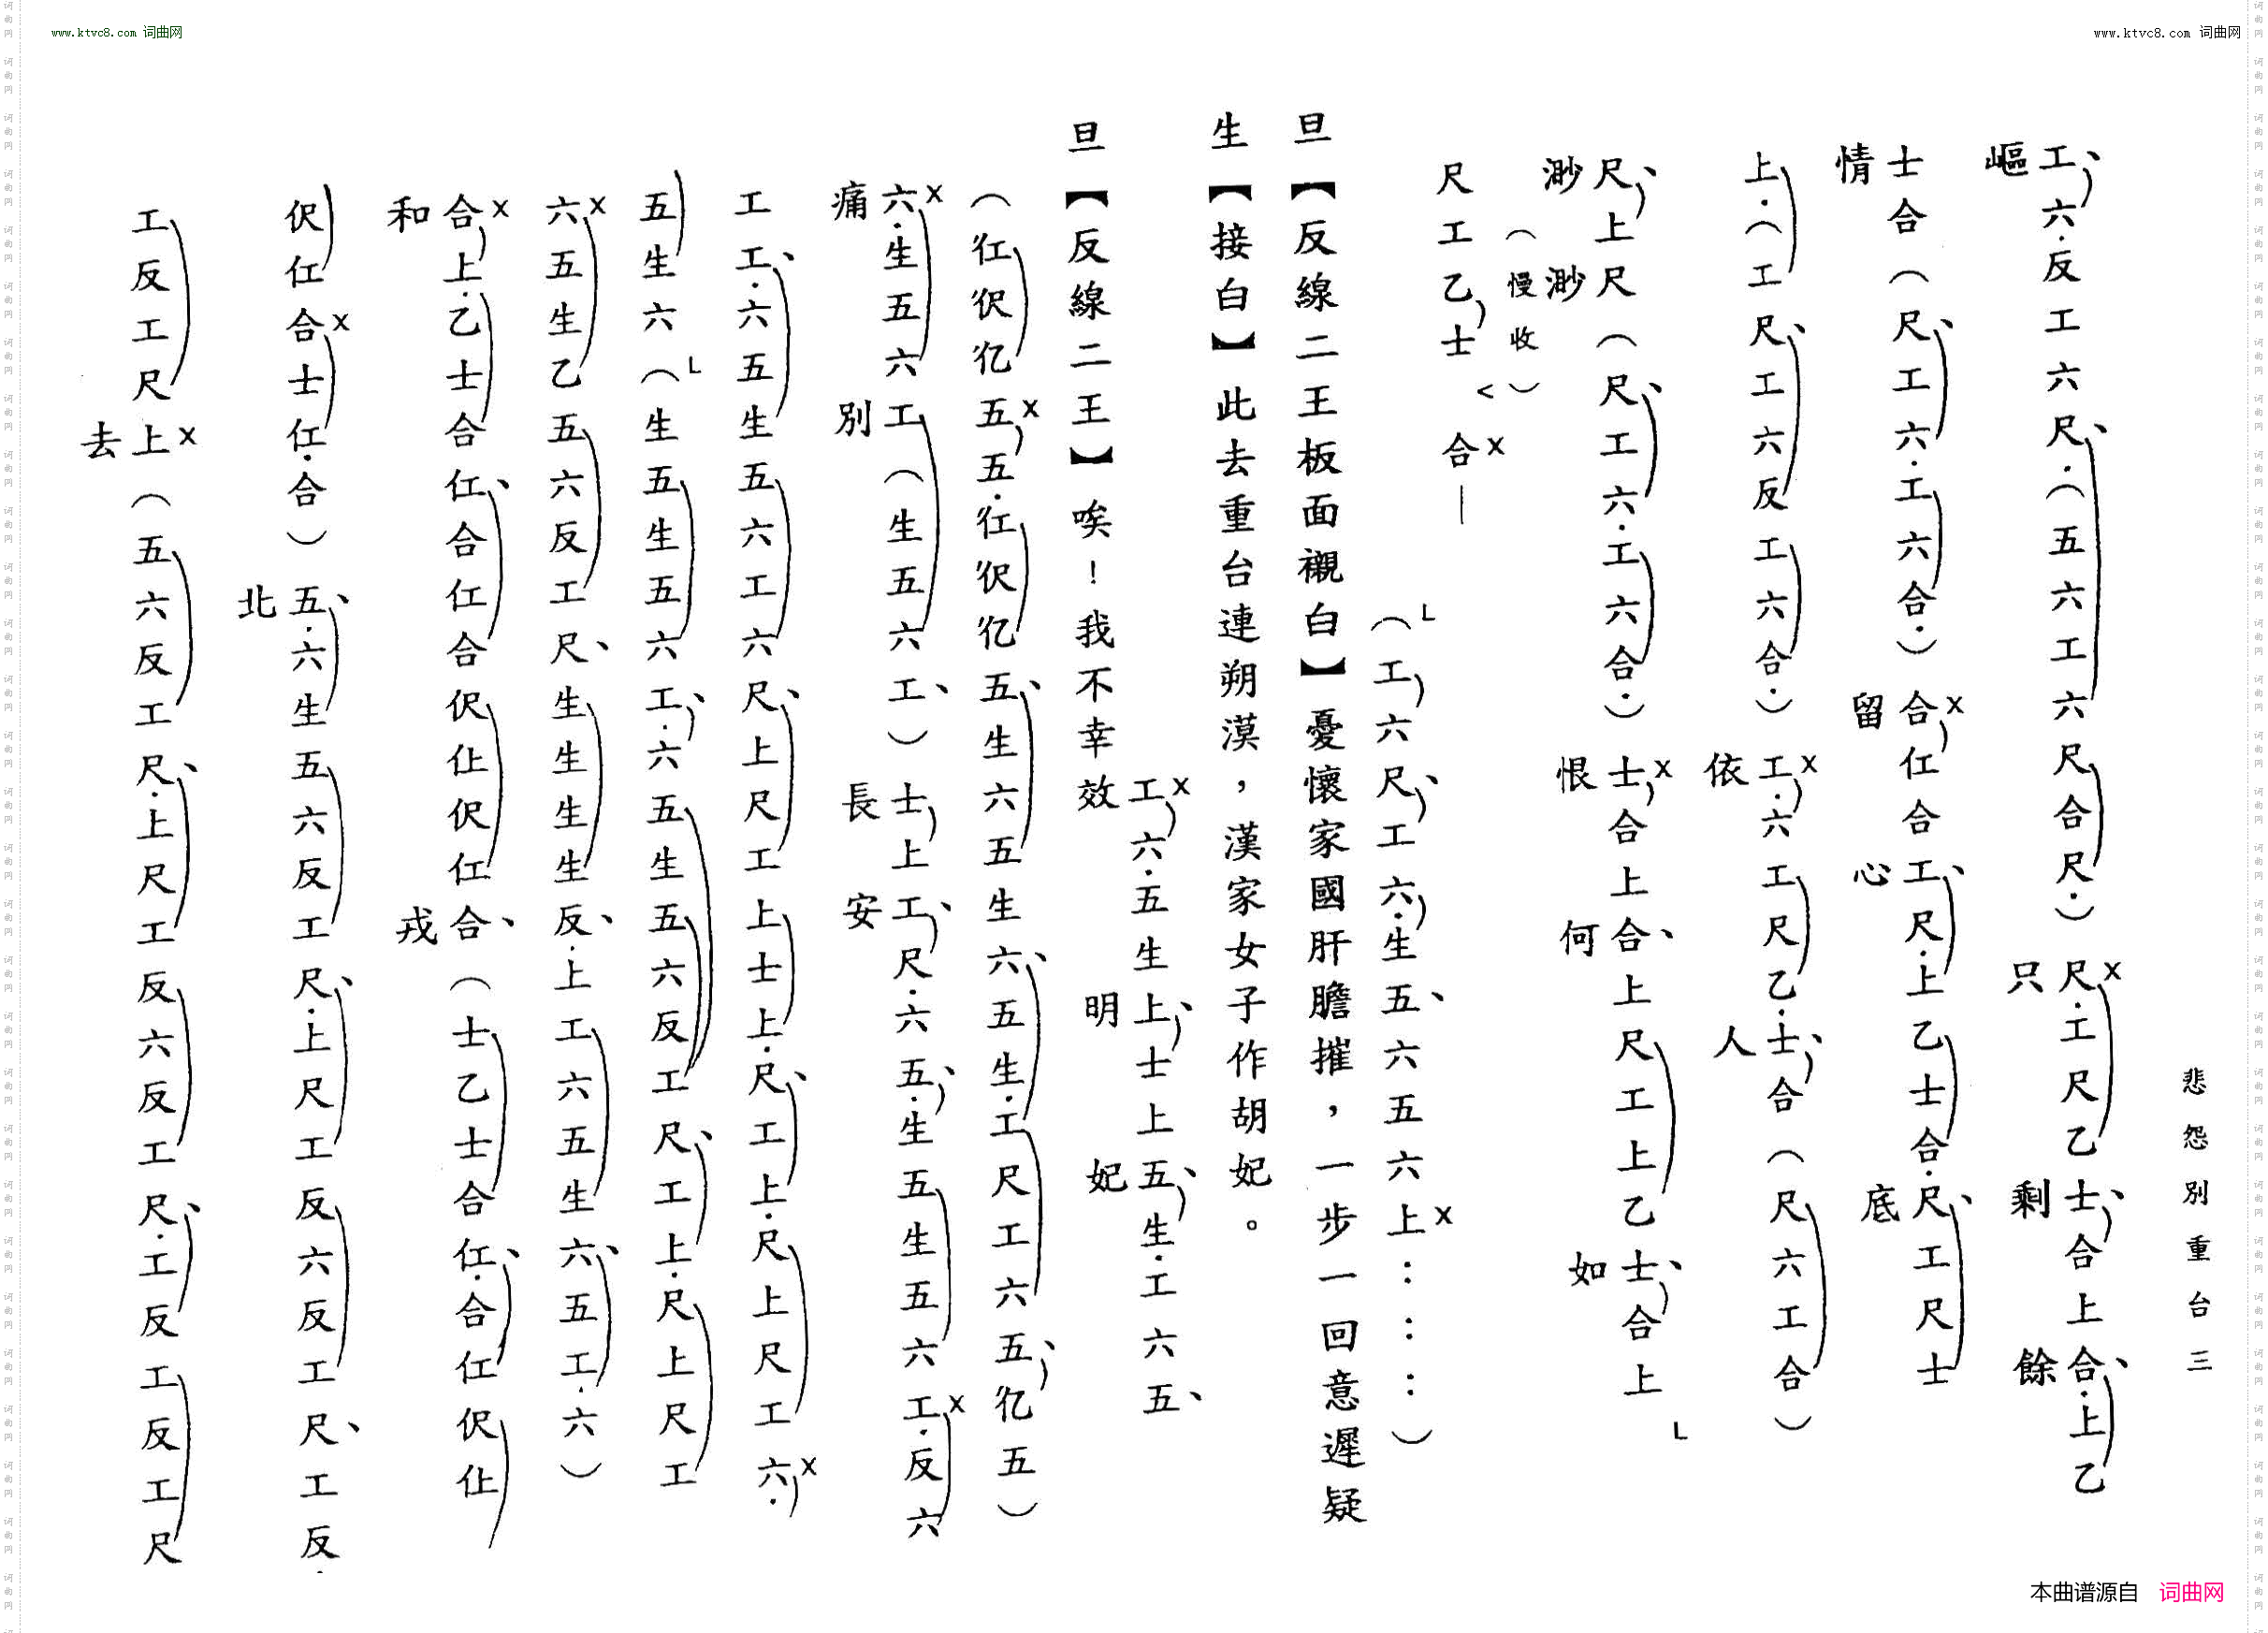 www.ktvc8.com 词曲网
www.ktvc8.com 词曲网
悲怨別重台三
工、六.反工六尺、.（五六工六尺合尺.）尺x.工尺乙士、合上合、.上乙
嶇只剩餘
士合（尺、工六.工六合.）合x仜合工、尺.上乙士合.尺、工尺士
情留心底
上.（工尺、工六反工六合.）工x.六工尺乙.士、合（尺六工合）
依人
尺、上尺（尺、工六.工六合.）士x合上合、上尺工上乙士、合上 └
渺渺恨何如
（慢收）
尺工乙士 < 合x—
└（工六尺、工六.生五、六五六上x：：：）
旦【反線二王板面襯白】憂懷家國肝膽摧，一步一回意遲疑
生【接白】此去重台連朔漠，漢家女子作胡妃。
工x六.五生上、士上五、生.工六五、
旦【反線二王】唉！我不幸效明妃
（仜伬亿五x五.仜伬亿五、生六五生六、五生.工尺工六五、亿五）
六x.生五六工（生五六工、）士上工、尺.六五、.生五生五六工x.反六
痛別長安
工工、.六五生五六工六尺、上尺工上士上.尺、工上.尺上尺工六x.
五生六（└生五生五六工、.六五生五六反工尺、工上.尺上尺工
六x五生乙五六反工尺、生生生生反、.上工六五生六、五工.六）
合x上.乙士合仜、合仜合伬仩伬仜合、（士乙士合仜、.合仜伬仩
和戎
伬仜合x士仜.合）五、.六生五六反工尺、.上尺工反六反工尺、工反.
北
工反工尺上x（五六反工尺、.上尺工反六反工尺、.工反工反工尺
去
本曲谱源自 词曲网